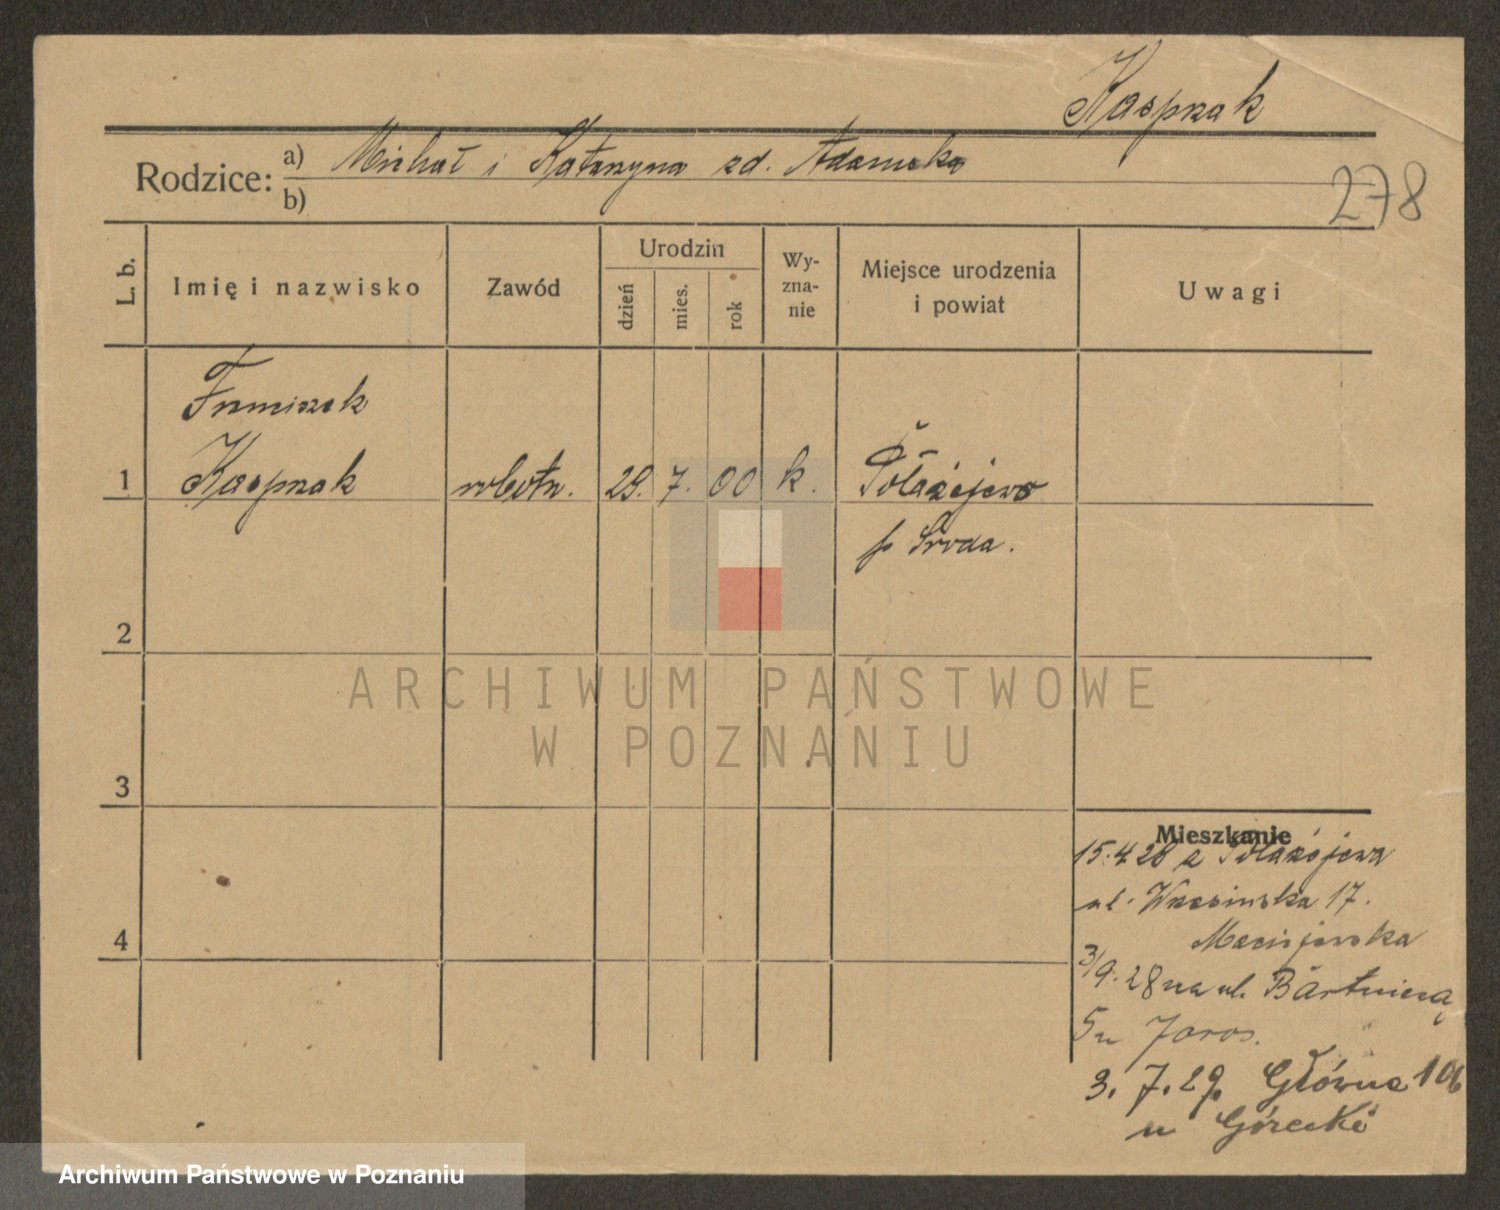 Kasprzak
Rodzice: a) Michał i Katarzyna zd. Adamska
b)
278
L. b.
Imię i nazwisko
Zawód
Urodzin
dzień
mies.
rok
Wy-
zna-
nie
Miejsce urodzenia
i powiat
Uwagi
Franciszek
1 Kasprzak robotn. 29. 7. 00 k. Połażejewo
p Środa.
2
3
4
Mieszkanie
15.4 28 z Połażejewa
ul. Wrzesińska 17.
Maciejewska
3/9. 28 na ul. Bartniczą
5 u Jaros.
3. 7. 29. Główna
u Górecki
ARCHIWUM PAŃSTWOWE
W POZNANIU
Archiwum Państwowe w Poznaniu